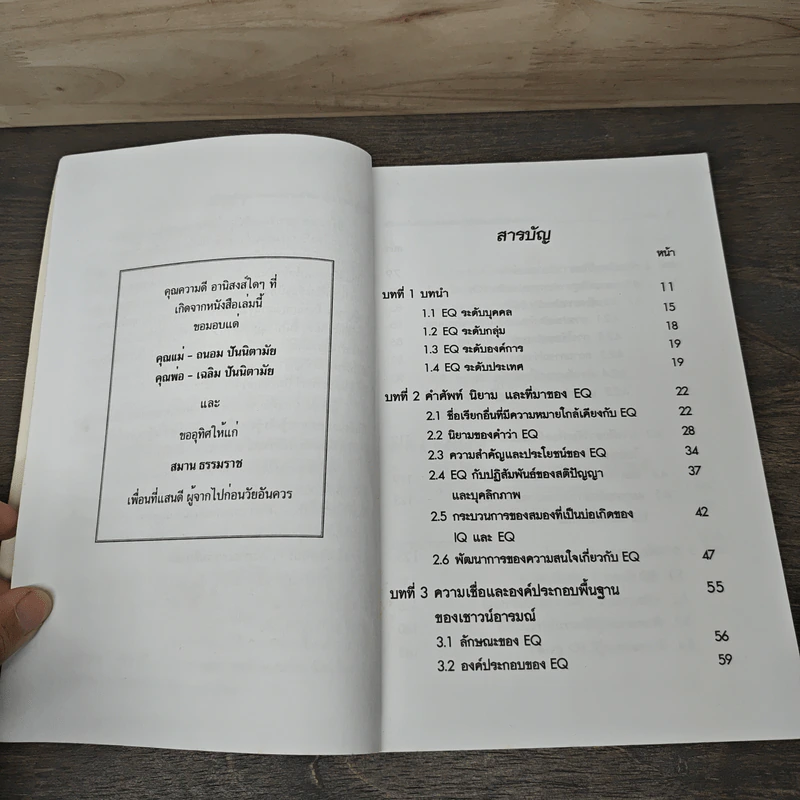 คุณความดี อานิสงส์ใดๆ ที่
เกิดจากหนังสือเล่มนี้
ขอมอบแด่
คุณแม่ - ถนอม ปันนิตามัย
คุณพ่อ - เฉลิม ปันนิตามัย
และ
ขออุทิศให้แก่
สมาน ธรรมราช
เพื่อนที่แสนดี ผู้จากไปก่อนวัยอันควร
สารบัญ
หน้า
บทที่ 1 บทนำ 11
1.1 EQ ระดับบุคคล 15
1.2 EQ ระดับกลุ่ม 18
1.3 EQ ระดับองค์การ 19
1.4 EQ ระดับประเทศ 19
บทที่ 2 คำศัพท์ นิยาม และที่มาของ EQ 22
2.1 ชื่อเรียกอื่นที่มีความหมายใกล้เคียงกับ EQ 22
2.2 นิยามของคำว่า EQ 28
2.3 ความสำคัญและประโยชน์ของ EQ 34
2.4 EQ กับปฏิสัมพันธ์ของสติปัญญา 37
และบุคลิกภาพ
2.5 กระบวนการของสมองที่เป็นบ่อเกิดของ 42
IQ และ EQ
2.6 พัฒนาการของความสนใจเกี่ยวกับ EQ 47
บทที่ 3 ความเชื่อและองค์ประกอบพื้นฐาน 55
ของเชาวน์อารมณ์
3.1 ลักษณะของ EQ 56
3.2 องค์ประกอบของ EQ 59